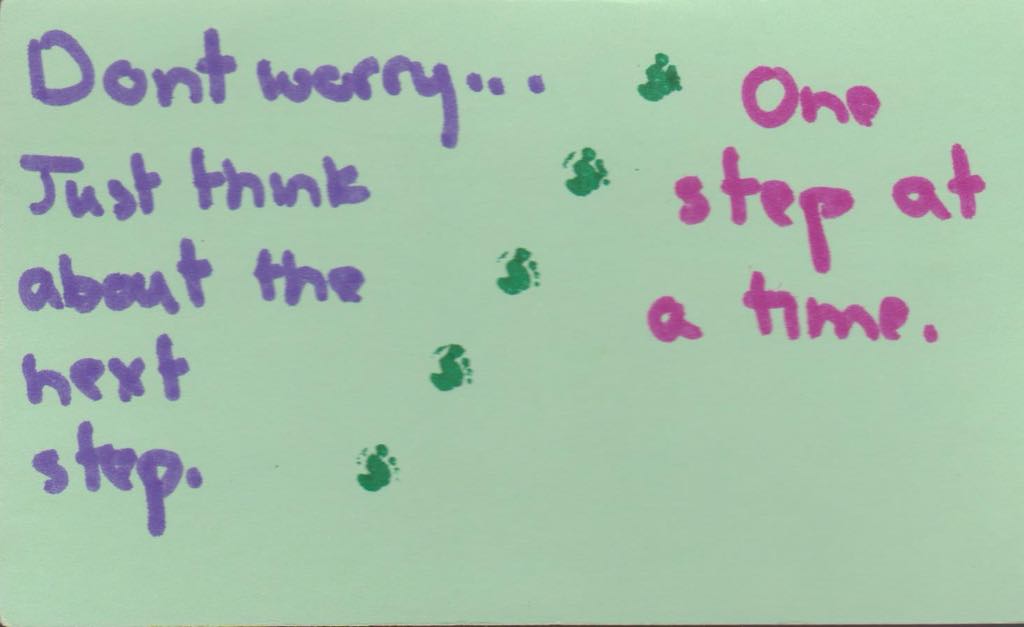 Dont worry...
Just think
about the
next
step.
One
step at
a time.